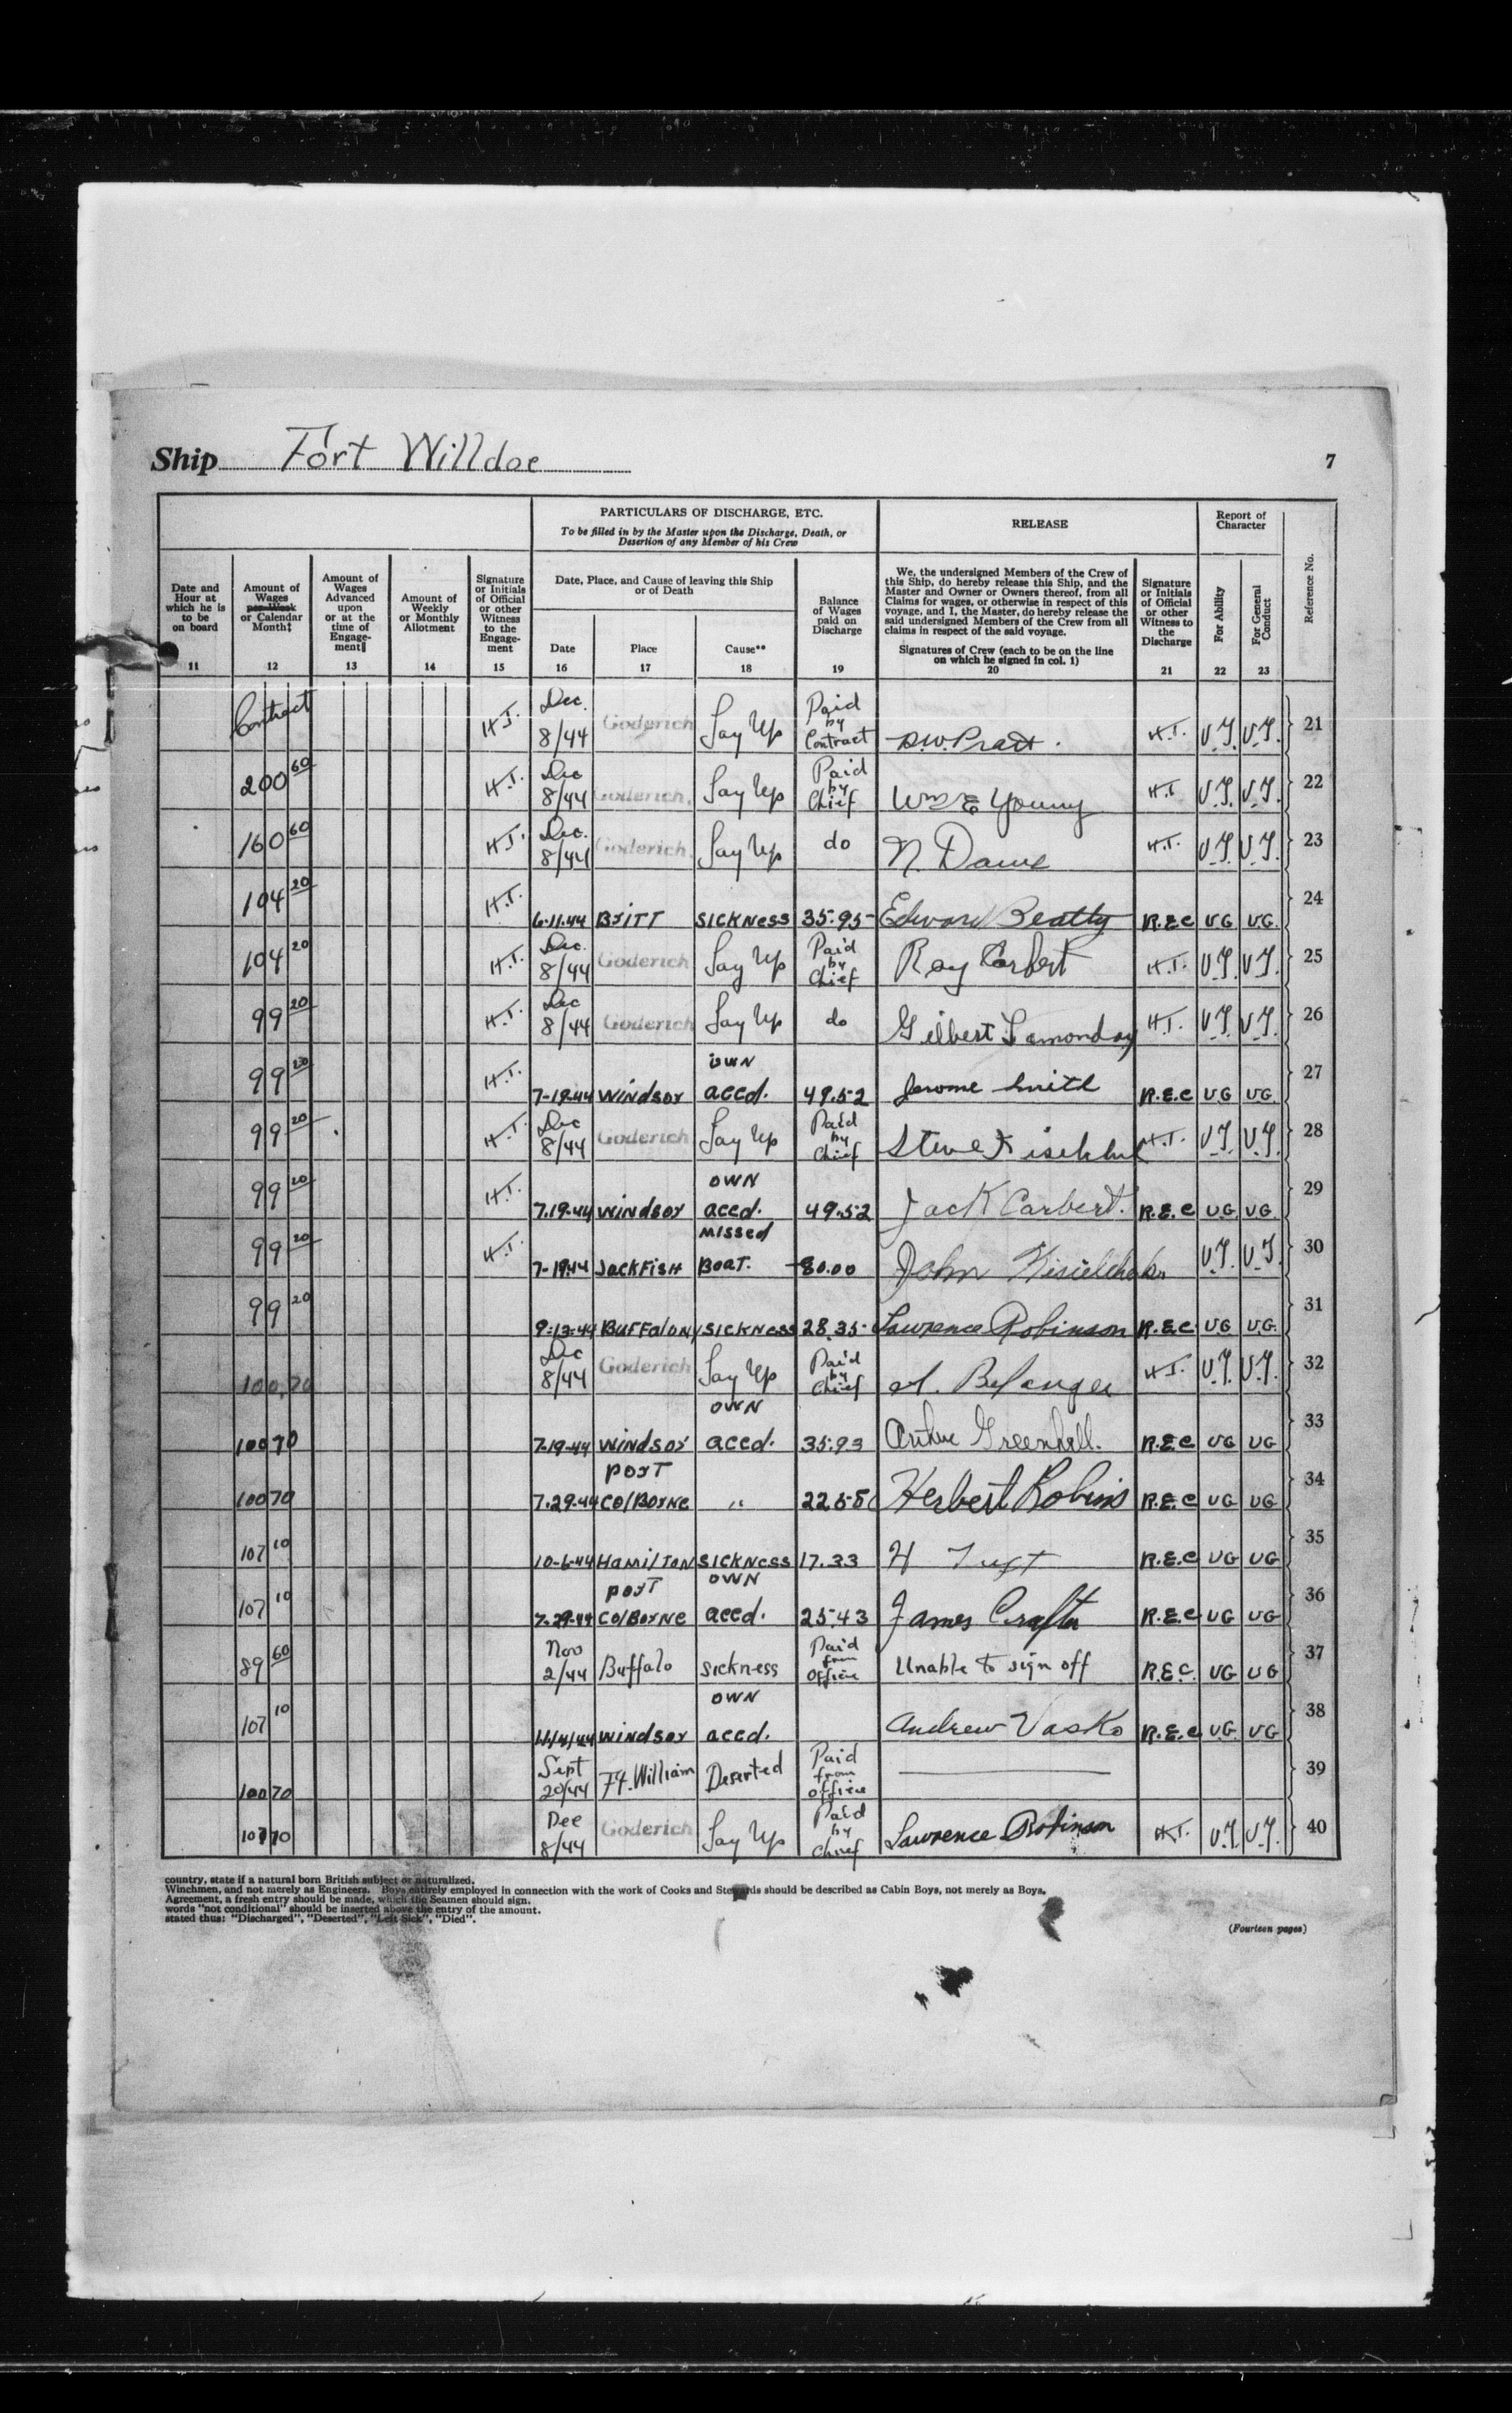 Ship Fort Willdoe
7
PARTICULARS OF DISCHARGE, ETC.
To be filled in by the Master upon the Discharge, Death, or
Desertion of any Member of his Crew
RELEASE
Report of
Character
Reference No.
Date and
Hour at
which he is
to be
on board
11
Amount of
Wages
per Week
or Calendar
Month‡
12
Amount of
Wages
Advanced
upon
or at the
time of
Engage-
ment‖
13
Amount of
Weekly
or Monthly
Allotment
14
Signature
or Initials
of Official
or other
Witness
to the
Engage-
ment
15
Date, Place, and Cause of leaving this Ship
or of Death
Date
16
Place
17
Cause**
18
Balance
of Wages
paid on
Discharge
19
We, the undersigned Members of the Crew of
this Ship, do hereby release this Ship, and the
Master and Owner or Owners thereof, from all
Claims for wages, or otherwise in respect of this
voyage, and I, the Master, do hereby release the
said undersigned Members of the Crew from all
claims in respect of the said voyage.
Signatures of Crew (each to be on the line
on which he signed in col. 1)
20
Signature
or Initials
of Official
or other
Witness to
the
Discharge
21
For Ability
22
For General
Conduct
23
Contract H.T. Dec. 8/44 Goderich Lay Up Paid by Contract D.W. Pratt. H.T. V.G. V.G. 21
200 60 H.T. Dec 8/44 Goderich. Lay Up Paid by Chief Wm E Young H.T V.G. V.G. 22
160 60 H.T. Dec. 8/44 Goderich. Lay Up do N. Dawe H.T. V.G. V.G. 23
104 20 H.T. 6-11-44 Britt Sickness 35.95 Edward Beatty R.E.C VG VG. 24
104 20 H.T. Dec. 8/44 Goderich Lay Up Paid by Chief Ray Carbert H.T. V.G. V.G. 25
99 20 H.T. Dec 8/44 Goderich Lay Up do Gilbert Lamonday H.T. V.G. V.G. 26
99 20 H.T. 7-19-44 Windsor own accd. 49.52 Jerome Smith R.E.C VG VG. 27
99 20 H.T. Dec 8/44 Goderich Lay Up Paid by Chief Steve H.T. V.G. V.G. 28
99 20 H.T. 7.19-44 Windsor own accd. 49.52 Jack Carbert. R.E.C VG VG. 29
99 20 H.T. 7-19-44 Jackfish missed Boat. 80.00 John V.G. V.G. 30
99 20 9-13-44 Buffalo NY Sickness 28.35 Lawrence Robinson R.E.C VG VG. 31
100.70 Dec 8/44 Goderich Lay Up Paid by Chief Belanger H.T. V.G. V.G. 32
100 70 7-19-44 Windsor own accd. 35.93 Arthur Greenhall. R.E.C VG VG 33
100 70 7.29.44 Port Colborne " Herbert Robins R.E.C VG VG 34
107 10 10-6-44 Hamilton Sickness 17.33 H R.E.C VG VG 35
107 10 7-29-44 Port Colborne own accd. 25.43 James Crafter R.E.C VG VG 36
89 60 Nov 2/44 Buffalo Sickness Paid from Office Unable to sign off R.E.C. VG VG 37
107 10 Windsor own accd. Andrew Vasko R.E.C VG. VG 38
100 70 Sept 20/44 Ft. William Deserted Paid from office 39
Dec 8/44 Goderich Lay Up Paid by Chief Lawrence Robinson H.T. V.G. V.G. 40
country, state if a natural born British subject or naturalized.
Winchmen, and not merely as Engineers. Boys entirely employed in connection with the work of Cooks and Stewards should be described as Cabin Boys, not merely as Boys.
Agreement, a fresh entry should be made, which the Seamen should sign.
words "not conditional" should be inserted above the entry of the amount.
stated thus: "Discharged", "Deserted", "Left Sick", "Died".
(Fourteen pages)